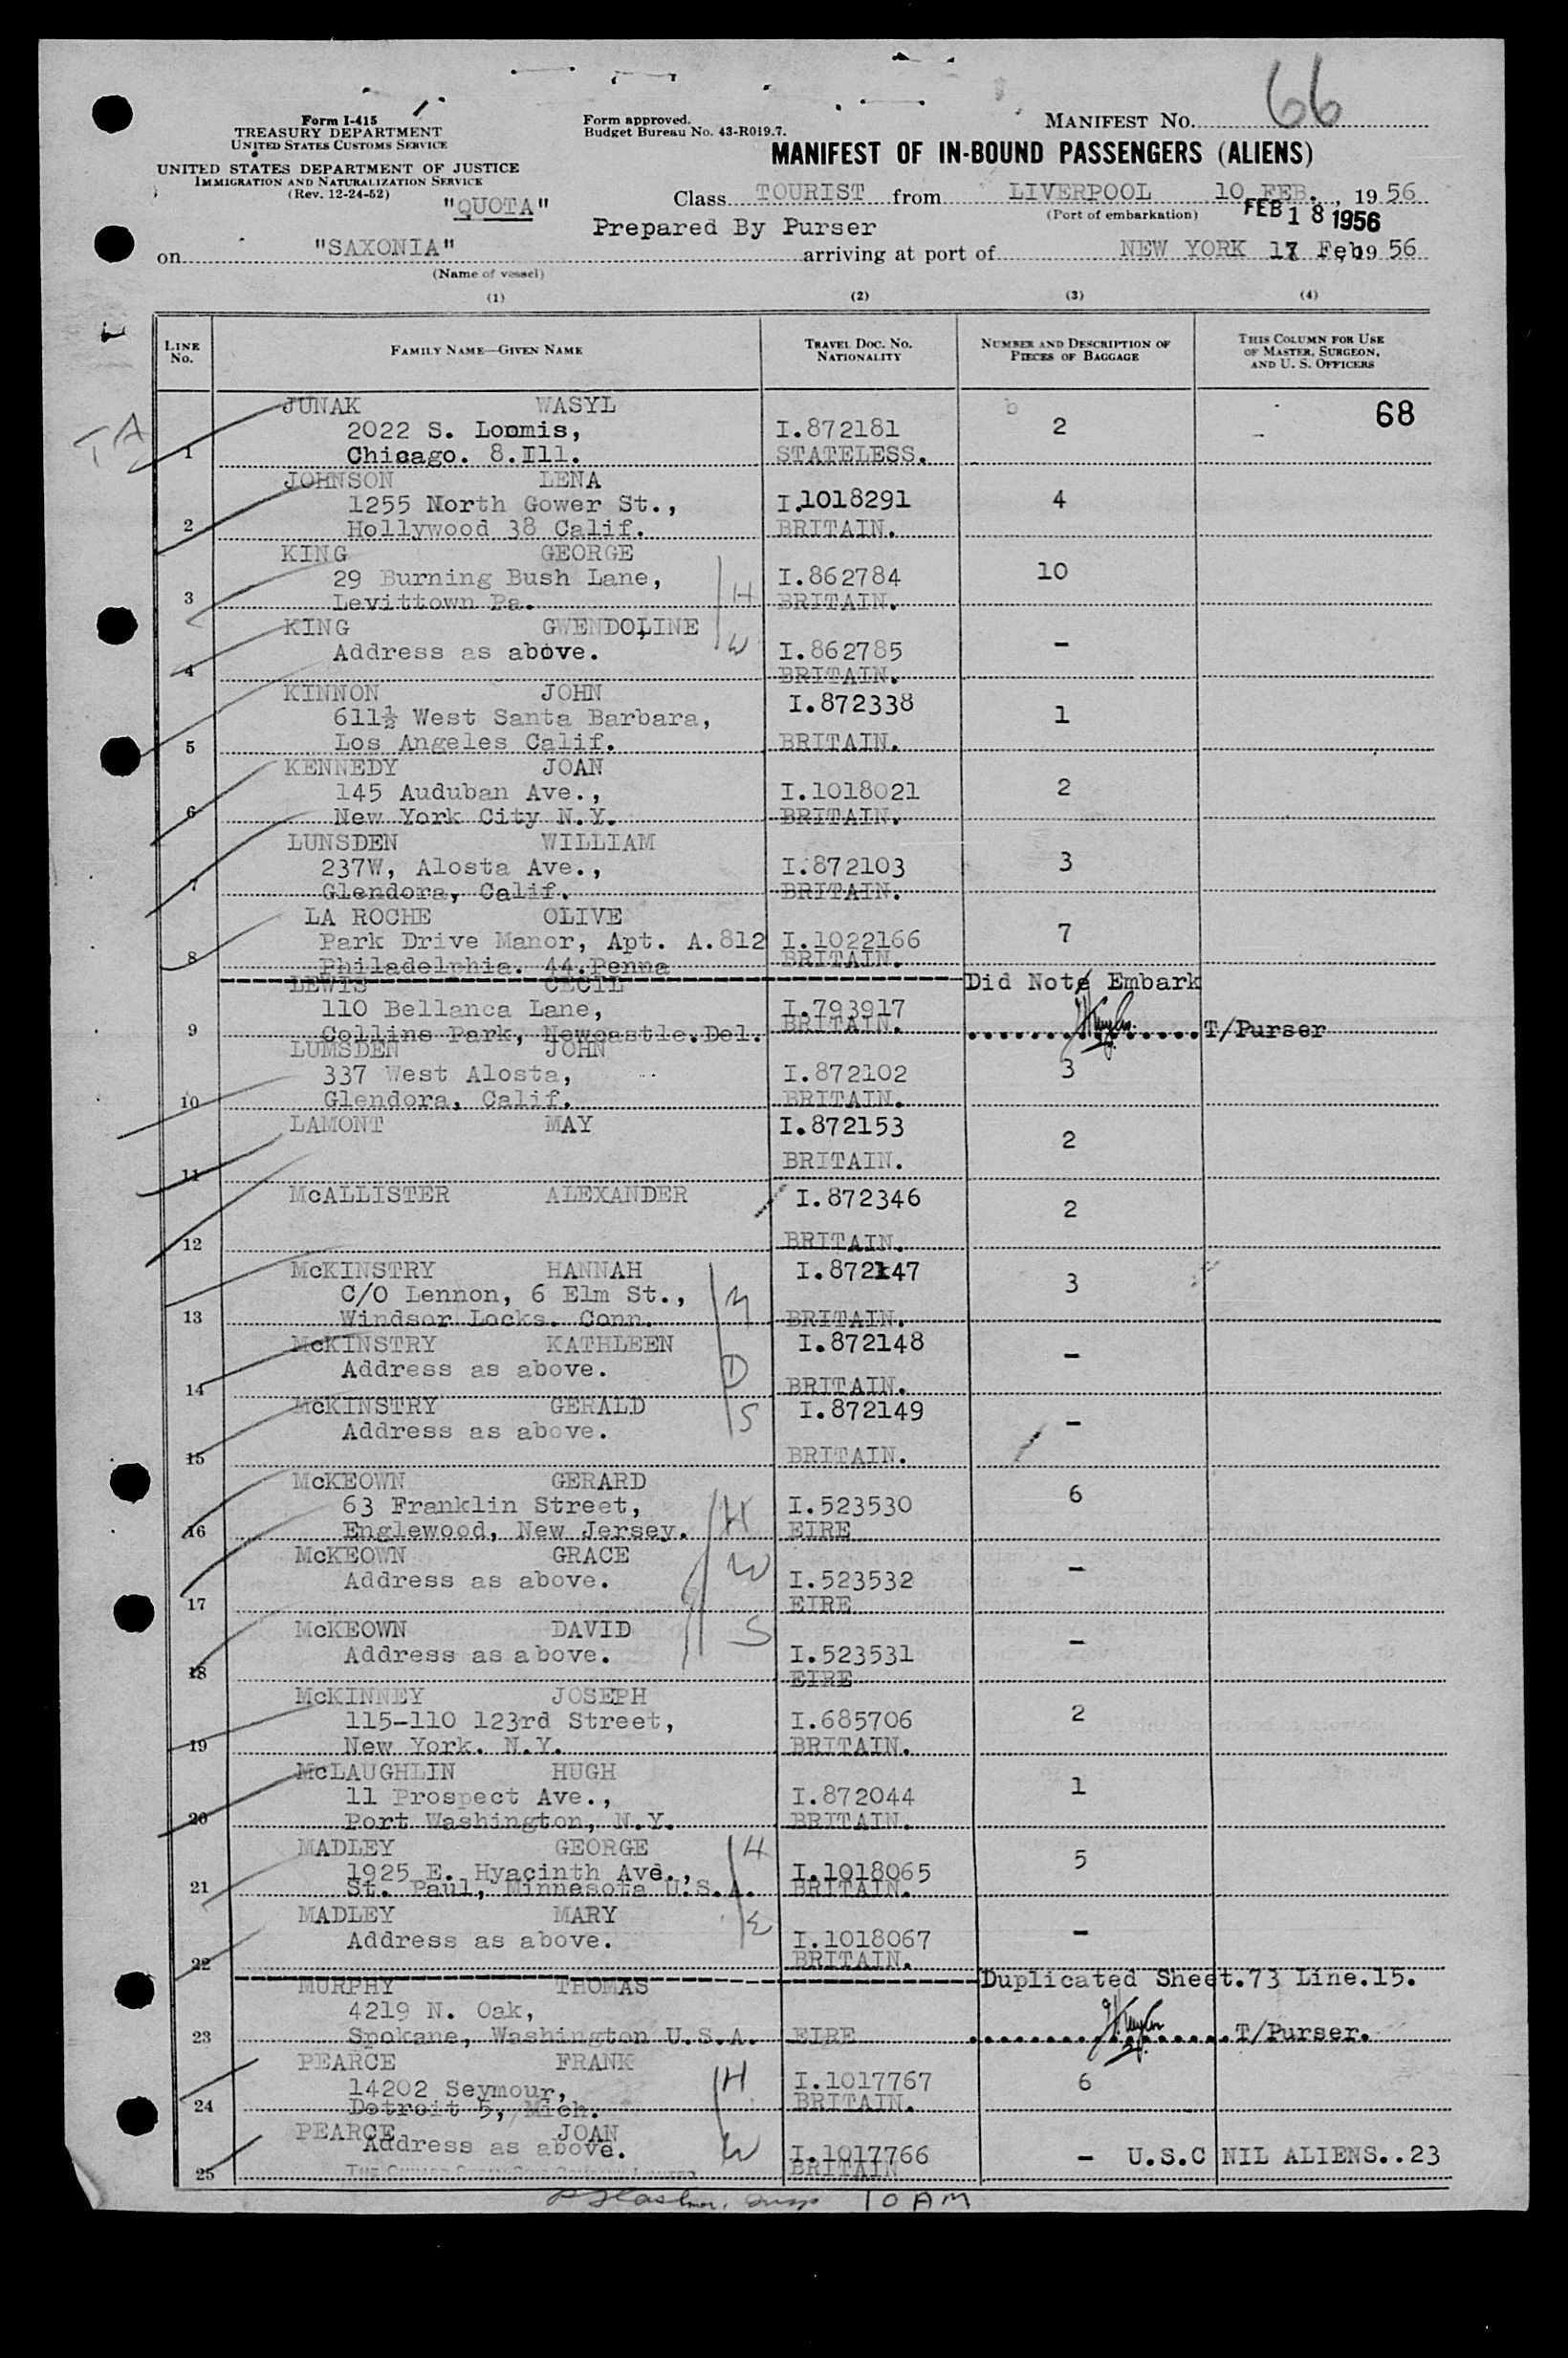 66
Form I-415
TREASURY DEPARTMENT
UNITED STATES CUSTOMS SERVICE
UNITED STATES DEPARTMENT OF JUSTICE
IMMIGRATION AND NATURALIZATION SERVICE
(Rev. 12-24-52)
Form approved.
Budget Bureau No. 43-R019.7.
MANIFEST NO.
MANIFEST OF IN-BOUND PASSENGERS (ALIENS)
"QUOTA"
Class TOURIST from LIVERPOOL 10 FEB., 1956
(Port of embarkation)
FEB 18 1956
Prepared By Purser
on "SAXONIA" arriving at port of NEW YORK 17 Feb 1956
(Name of vessel)
(1) (2) (3) (4)
LINE No.
FAMILY NAME—GIVEN NAME
TRAVEL DOC. NO. NATIONALITY
NUMBER AND DESCRIPTION OF PIECES OF BAGGAGE
THIS COLUMN FOR USE OF MASTER, SURGEON, AND U. S. OFFICERS
68
TA
JUNAK WASYL
2022 S. Loomis, I.872181 2
1 Chicago. 8.Ill. STATELESS.
JOHNSON LENA
1255 North Gower St., I.1018291 4
2 Hollywood 38 Calif. BRITAIN.
KING GEORGE
29 Burning Bush Lane, I.862784 10
3 Levittown Pa. H BRITAIN.
KING GWENDOLINE
Address as above. W I.862785 -
4 BRITAIN.
KINNON JOHN I.872338
611½ West Santa Barbara, 1
5 Los Angeles Calif. BRITAIN.
KENNEDY JOAN
145 Auduban Ave., I.1018021 2
6 New York City N.Y. BRITAIN.
LUNSDEN WILLIAM
237W, Alosta Ave., I.872103 3
7 Glendora, Calif. BRITAIN.
LA ROCHE OLIVE
Park Drive Manor, Apt. A.812 I.1022166 7
8 Philadelphia. 44.Penna BRITAIN.
LEWIS CECIL Did Note Embark
110 Bellanca Lane, I.793917
9 Collins Park, Newcastle.Del. BRITAIN. T/Purser
LUMSDEN JOHN
337 West Alosta, I.872102 3
10 Glendora, Calif. BRITAIN.
LAMONT MAY I.872153 2
11 BRITAIN.
McALLISTER ALEXANDER I.872346 2
12 BRITAIN.
McKINSTRY HANNAH I.872147
C/O Lennon, 6 Elm St., M 3
13 Windsor Locks. Conn. BRITAIN.
McKINSTRY KATHLEEN I.872148
Address as above. D -
14 BRITAIN.
McKINSTRY GERALD I.872149
Address as above. S -
15 BRITAIN.
McKEOWN GERARD
63 Franklin Street, H I.523530 6
16 Englewood, New Jersey. EIRE
McKEOWN GRACE
Address as above. W I.523532 -
17 EIRE
McKEOWN DAVID
Address as above. S I.523531 -
18 EIRE
McKINNEY JOSEPH
115-110 123rd Street, I.685706 2
19 New York. N.Y. BRITAIN.
McLAUGHLIN HUGH
11 Prospect Ave., I.872044 1
20 Port Washington, N.Y. BRITAIN.
MADLEY GEORGE H
1925 E. Hyacinth Ave., I.1018065 5
21 St. Paul, Minnesota U.S.A. BRITAIN.
MADLEY MARY
Address as above. I.1018067 -
22 BRITAIN.
MURPHY THOMAS Duplicated Sheet.73 Line.15.
4219 N. Oak,
23 Spokane, Washington U.S.A. EIRE T/Purser.
PEARCE FRANK
14202 Seymour, H I.1017767 6
24 Detroit 5, Mich. BRITAIN.
PEARCE JOAN
Address as above. W I.1017766 - U.S.C NIL ALIENS..23
25 BRITAIN
10 AM